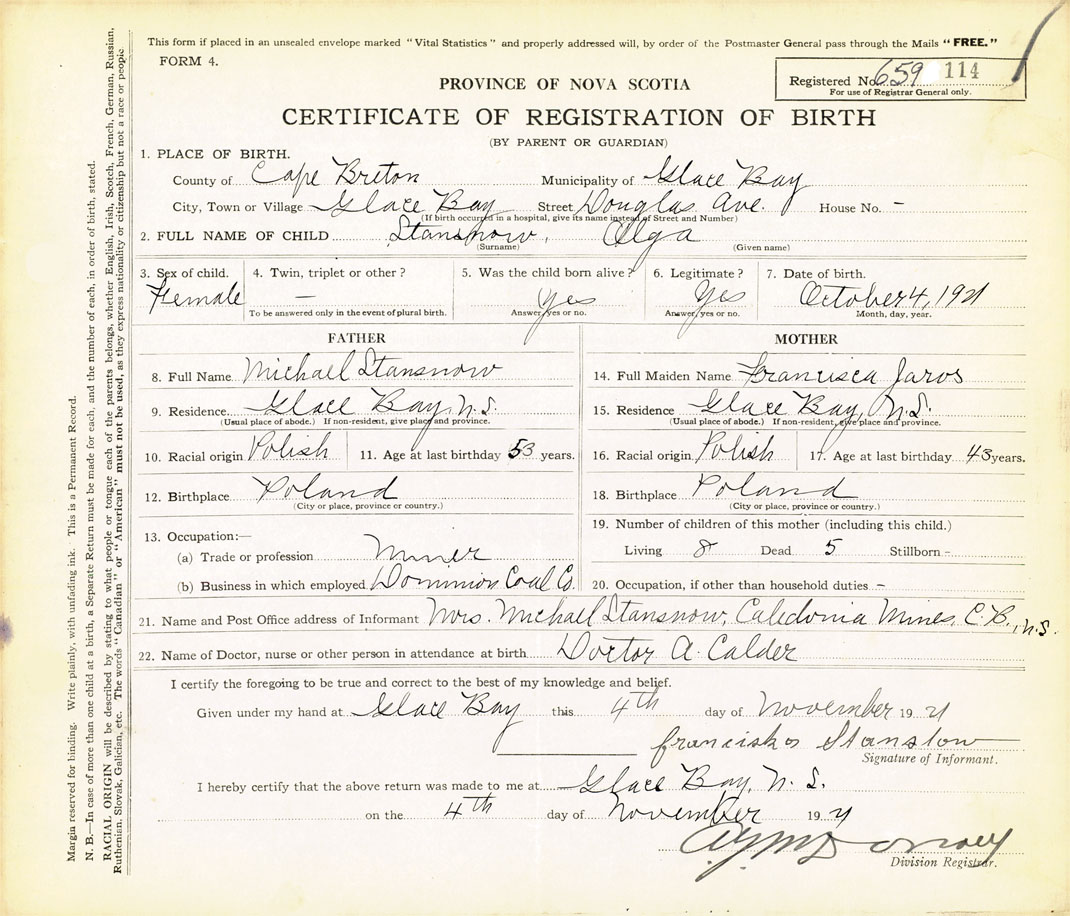 This form if placed in an unsealed envelope marked "Vital Statistics" and properly addressed will, by order of the Postmaster General pass through the Mails "FREE."
FORM 4.
Registered No. 659 114
For use of Registrar General only.
PROVINCE OF NOVA SCOTIA
CERTIFICATE OF REGISTRATION OF BIRTH
(BY PARENT OR GUARDIAN)
1. PLACE OF BIRTH.
County of Cape Breton Municipality of Glace Bay
City, Town or Village Glace Bay Street Douglas Ave. House No. -
(If birth occurred in a hospital, give its name instead of Street and Number)
2. FULL NAME OF CHILD Stansnow, Olga
(Surname) (Given name)
3. Sex of child. 4. Twin, triplet or other? 5. Was the child born alive? 6. Legitimate? 7. Date of birth.
Female — Yes Yes October 4, 1921
To be answered only in the event of plural birth. Answer, yes or no. Answer, yes or no. Month, day, year.
FATHER MOTHER
8. Full Name Michael Stansnow 14. Full Maiden Name Francisca Jaros
9. Residence Glace Bay, N.S. 15. Residence Glace Bay, N.S.
(Usual place of abode.) If non-resident, give place and province. (Usual place of abode.) If non-resident, give place and province.
10. Racial origin Polish 11. Age at last birthday 53 years. 16. Racial origin Polish 17. Age at last birthday 43 years.
12. Birthplace Poland 18. Birthplace Poland
(City or place, province or country.) (City or place, province or country.)
13. Occupation:— 19. Number of children of this mother (including this child.)
(a) Trade or profession Miner Living 8 Dead 5 Stillborn -
(b) Business in which employed Dominion Coal Co. 20. Occupation, if other than household duties -
21. Name and Post Office address of Informant Mrs. Michael Stansnow, Caledonia Mines, C.B., N.S.
22. Name of Doctor, nurse or other person in attendance at birth Doctor A. Calder
I certify the foregoing to be true and correct to the best of my knowledge and belief.
Given under my hand at Glace Bay this 4th day of November 1921
Franciska Stanslow
Signature of Informant.
I hereby certify that the above return was made to me at Glace Bay, N.S.
on the 4th day of November 1921
Division Registrar.
Margin reserved for binding. Write plainly, with unfading ink. This is a Permanent Record.
N. B.—In case of more than one child at a birth, a Separate Return must be made for each, and the number of each, in order of birth, stated.
RACIAL ORIGIN will be described by stating to what people or tongue each of the parents belongs, whether English, Irish, Scotch, French, German, Russian,
Ruthenian, Slovak, Galician, etc. The words "Canadian" or "American" must not be used, as they express nationality or citizenship but not a race or people